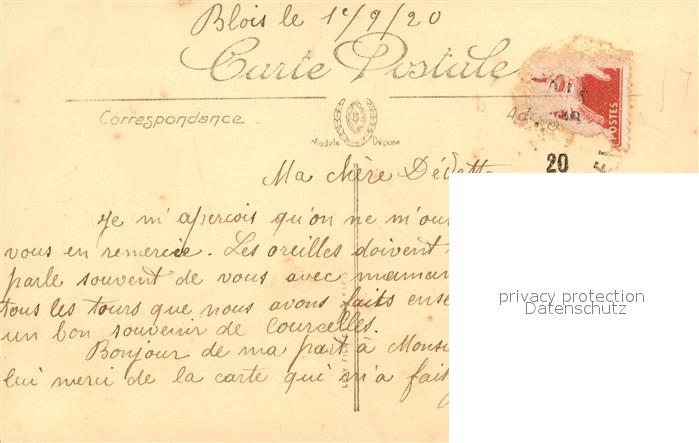 Blois le 1e/9/20
Carte Postale
Correspondance
Modèle Déposé
POSTES
20
Ma chère
Je m'aperçois qu'on ne
vous en remercie. Les oreilles doivent
parle souvent de vous avec maman
tous les tours que nous avons faits
un bon souvenir de Courcelles.
Bonjour de ma part à
lui merci de la carte qui m'a fait
privacy protection
Datenschutz